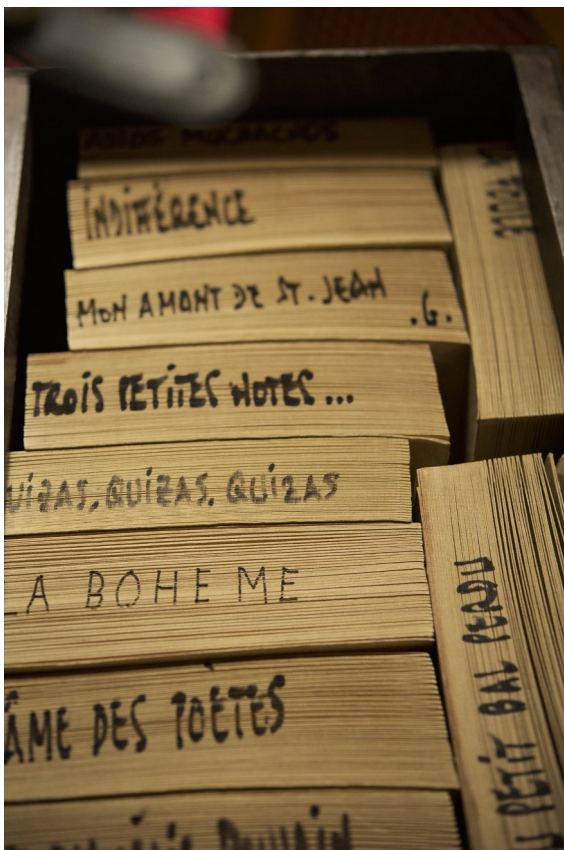 ADIOS MUCHACHOS
INDIFFÉRENCE
MON AMANT DE ST. JEAN .G.
TROIS PETITES NOTES ...
UIZAS, QUIZAS, QUIZAS
LA BOHEME
ÂME DES POÈTES
U PETIT BAL PERDU
Poulain